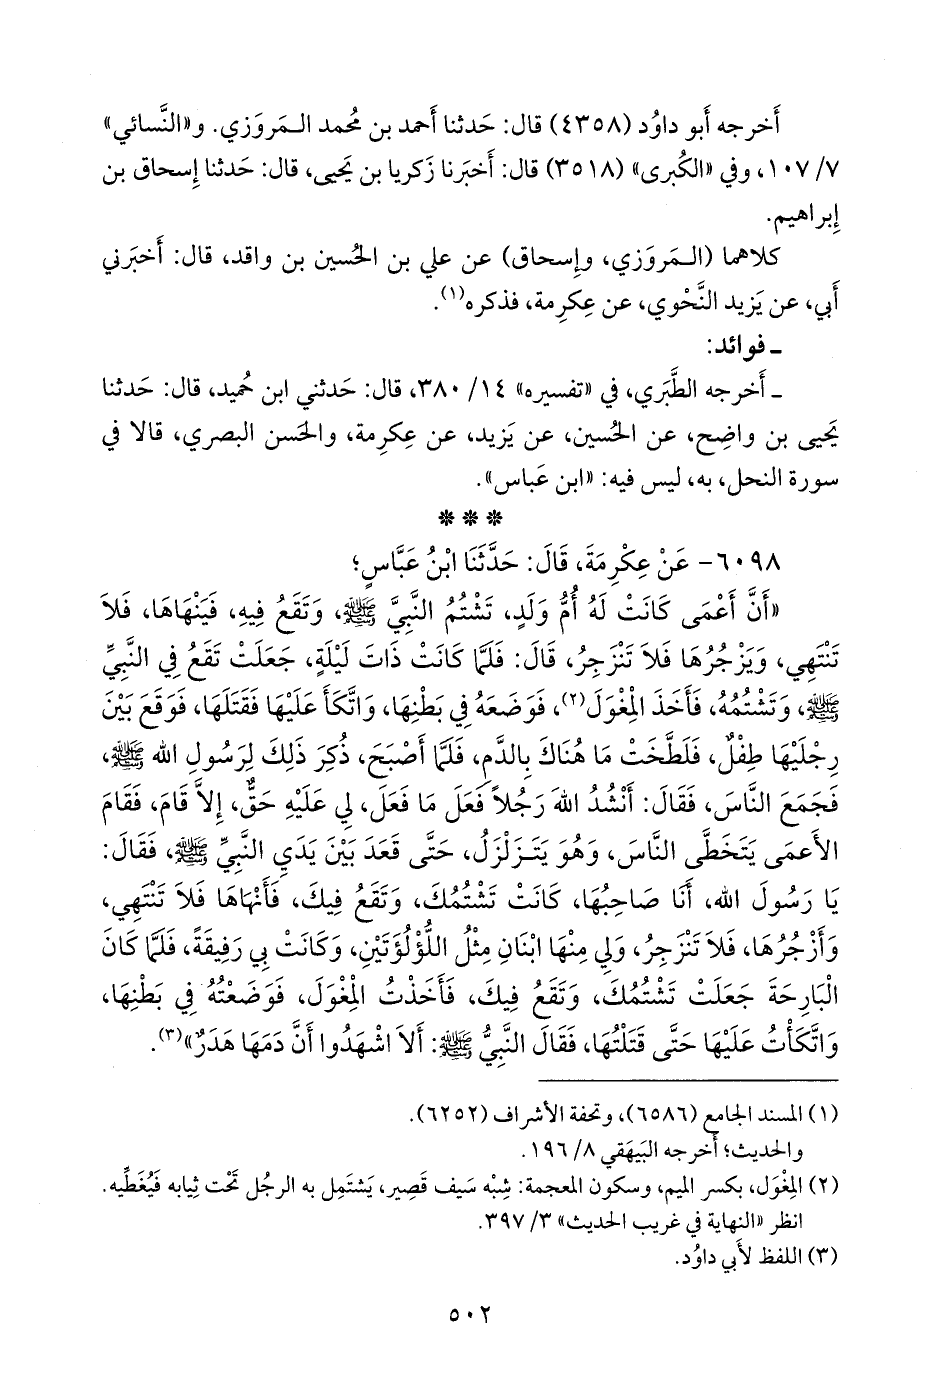 أَخرجه أَبو داوُد (٤٣٥٨) قال: حَدثنا أَحمد بن مُحمد الـمَروَزي. و«النَّسائي»
٧/ ١٠٧، وفي «الكُبرى» (٣٥١٨) قال: أَخبَرنا زَكريا بن يَحيى، قال: حَدثنا إِسحاق بن
إِبراهيم.
كلاهما (الـمَروَزي، وإِسحاق) عن علي بن الحُسين بن واقد، قال: أَخبَرني
أَبي، عن يَزيد النَّحْوي، عن عِكرِمة، فذكره(١).
ـ فوائد:
ـ أَخرجه الطَّبَري، في «تفسيره» ١٤/ ٣٨٠، قال: حَدثني ابن حُميد، قال: حَدثنا
يَحيى بن واضِح، عن الحُسين، عن يَزيد، عن عِكرِمة، والحَسن البصري، قالا في
سورة النحل، به، ليس فيه: «ابن عَباس».
* * *
٦٠٩٨- عَنْ عِكْرِمَةَ، قَالَ: حَدَّثَنَا ابْنُ عَبَّاسٍ؛
«أَنَّ أَعْمَى كَانَتْ لَهُ أُمُّ وَلَدٍ، تَشْتُمُ النَّبِيَّ ﷺ، وَتَقَعُ فِيهِ، فَيَنْهَاهَا، فَلاَ
تَنْتَهِي، وَيَزْجُرُهَا فَلاَ تَنْزَجِرُ، قَالَ: فَلَمَّا كَانَتْ ذَاتَ لَيْلَةٍ، جَعَلَتْ تَقَعُ فِي النَّبِيِّ
ﷺ، وَتَشْتُمُهُ، فَأَخَذَ الْمِغْوَلَ(٢)، فَوَضَعَهُ فِي بَطْنِهَا، وَاتَّكَأَ عَلَيْهَا فَقَتَلَهَا، فَوَقَعَ بَيْنَ
رِجْلَيْهَا طِفْلٌ، فَلَطَّخَتْ مَا هُنَاكَ بِالدَّمِ، فَلَمَّا أَصْبَحَ، ذُكِرَ ذَلِكَ لِرَسُولِ الله ﷺ،
فَجَمَعَ النَّاسَ، فَقَالَ: أَنْشُدُ اللهَ رَجُلاً فَعَلَ مَا فَعَلَ، لِي عَلَيْهِ حَقٌّ، إِلاَّ قَامَ، فَقَامَ
الأَعمَى يَتَخَطَّى النَّاسَ، وَهُوَ يَتَـزَلْزَلُ، حَتَّى قَعَدَ بَيْنَ يَدَيِ النَّبِيِّ ﷺ، فَقَالَ:
يَا رَسُولَ الله، أَنَا صَاحِبُهَا، كَانَتْ تَشْتُمُكَ، وَتَقَعُ فِيكَ، فَأَنْهَاهَا فَلاَ تَنْتَهِي،
وَأَزْجُرُهَا، فَلاَ تَنْزَجِرُ، وَلِي مِنْهَا ابْنَانِ مِثْلُ اللُّؤْلُؤَتَيْنِ، وَكَانَتْ بِي رَفِيقَةً، فَلَمَّا كَانَ
الْبَارِحَةَ جَعَلَتْ تَشْتُمُكَ، وَتَقَعُ فِيكَ، فَأَخَذْتُ الْمِغْوَلَ، فَوَضَعْتُهُ فِي بَطْنِهَا،
وَاتَّكَأْتُ عَلَيْهَا حَتَّى قَتَلْتُهَا، فَقَالَ النَّبِيُّ ﷺ: أَلاَ اشْهَدُوا أَنَّ دَمَهَا هَدَرٌ»(٣).
(١) المسند الجامع (٦٥٨٦)، وتحفة الأشراف (٦٢٥٢).
والحديث؛ أخرجه البَيهَقي ٨/ ١٩٦.
(٢) المِغْوَل، بكسر الميم، وسكون المعجمة: شِبْه سَيف قَصِير، يَشتَمِل به الرجُل تَحْت ثِيابه فَيُغَطِّيه.
انظر «النهاية في غريب الحديث» ٣/ ٣٩٧.
(٣) اللفظ لأَبي داوُد.
٥٠٢